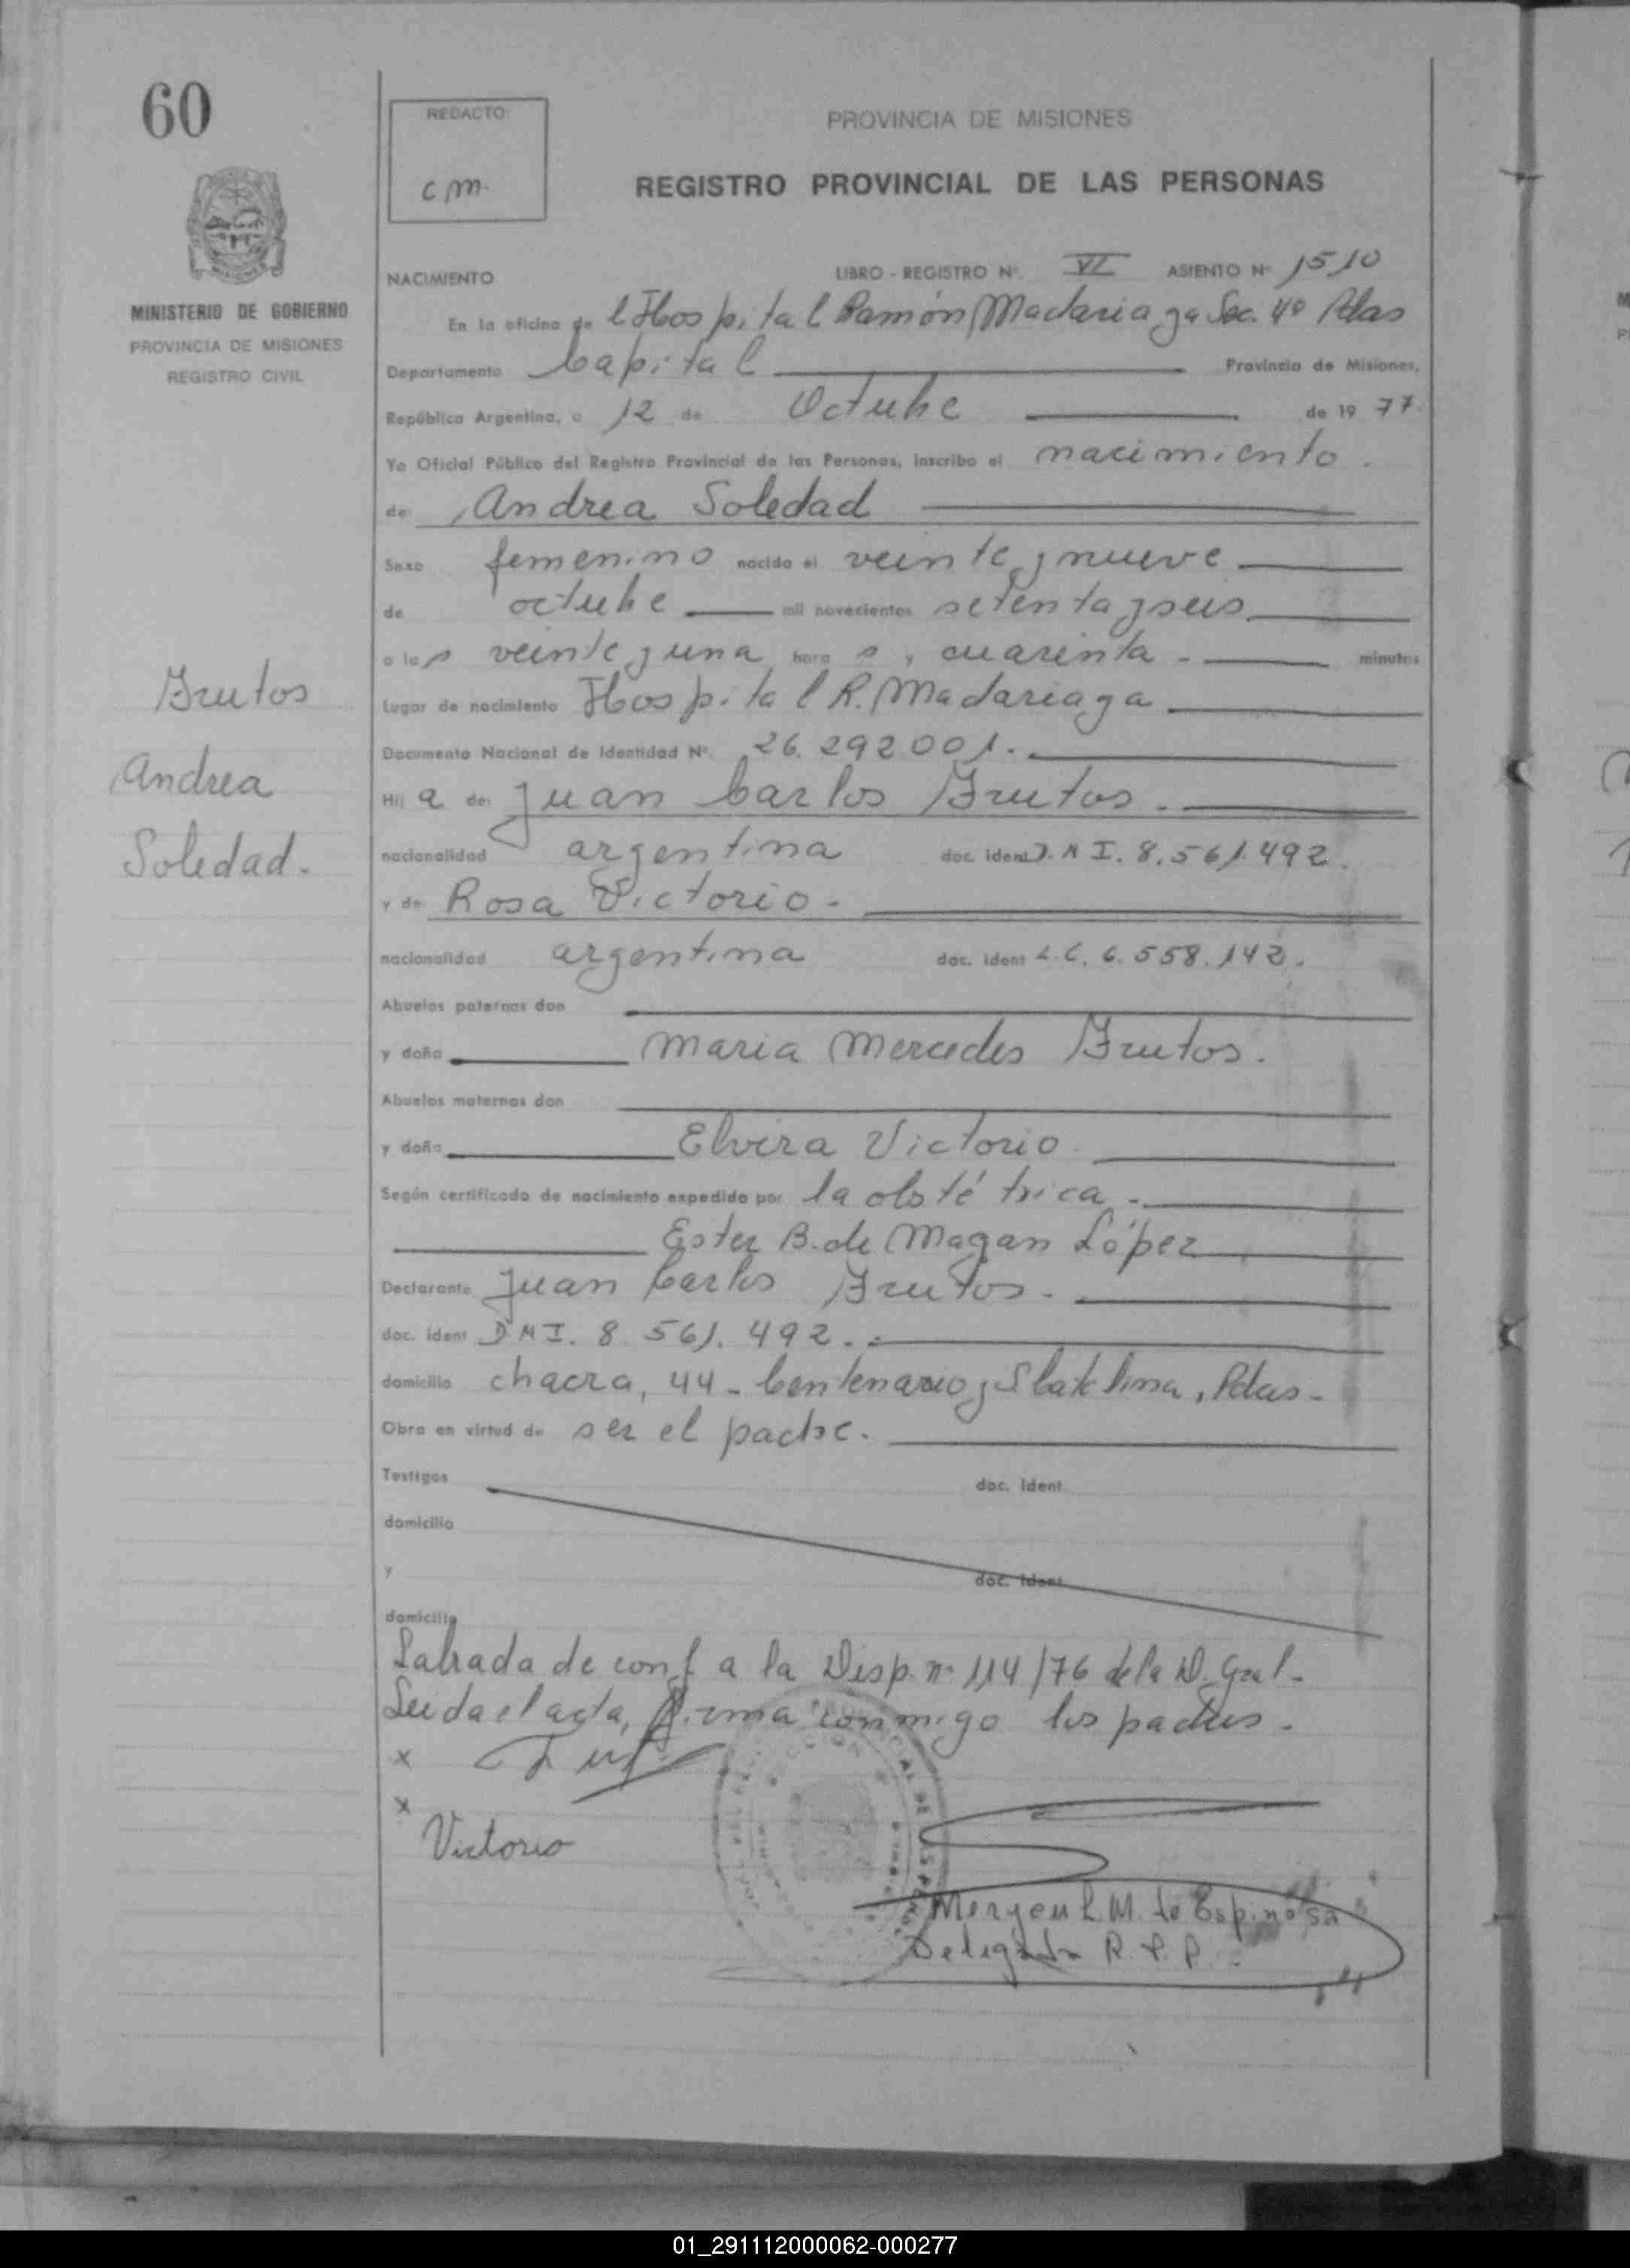 60
REDACTO:
c m.
PROVINCIA DE MISIONES
REGISTRO PROVINCIAL DE LAS PERSONAS
MINISTERIO DE GOBIERNO
PROVINCIA DE MISIONES
REGISTRO CIVIL
NACIMIENTO
LIBRO - REGISTRO Nº. VI ASIENTO Nº 1510
En la oficina de l Hospital Ramón Madariaga Sec. 4º Pdas
Departamento Capital Provincia de Misiones,
República Argentina, a 12 de Octubre de 19 77.
Yo Oficial Público del Registro Provincial de las Personas, inscribo el nacimiento.
de Andrea Soledad
Sexo femenino nacido el veinte y nueve
de octubre mil novecientos setenta y seis
a las veinte y una hora s, cuarenta - minutos
Lugar de nacimiento Hospital R. Madariaga
Documento Nacional de Identidad Nº. 26.292001.
Hij a de: Juan Carlos Frutos.
nacionalidad argentina doc. ident D.N I. 8.561.492.
y de Rosa Victorio-
nacionalidad argentina doc. ident L.C. 6.558.142.
Abuelos paternos don
y doña Maria Mercedes Frutos.
Abuelos maternos don
y doña Elvira Victorio
Según certificado de nacimiento expedido por la obstétrica.
Ester B. de Magan López
Declarante Juan Carlos Frutos.
doc. ident D N I. 8.561.492.
domicilio chacra, 44- Centenario y, Pdas-
Obra en virtud de ser el padre.
Testigos doc. ident
domicilio
y doc. ident
domicilio
Labrada de conf a la Disp. nº 114/76 de la D. Gral-
Leida el acta, firma conmigo los padres-
x
x
Victorio
L. M. de Espinosa
Delegada R. P. P.
Frutos
Andrea
Soledad.
01_291112000062-000277